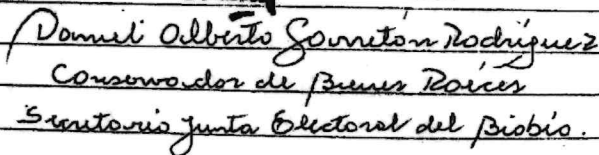 Daniel Alberto Sarretón Rodríguez
Conservador de Bienes Raíces
Secretario Junta Electoral del Biobío.